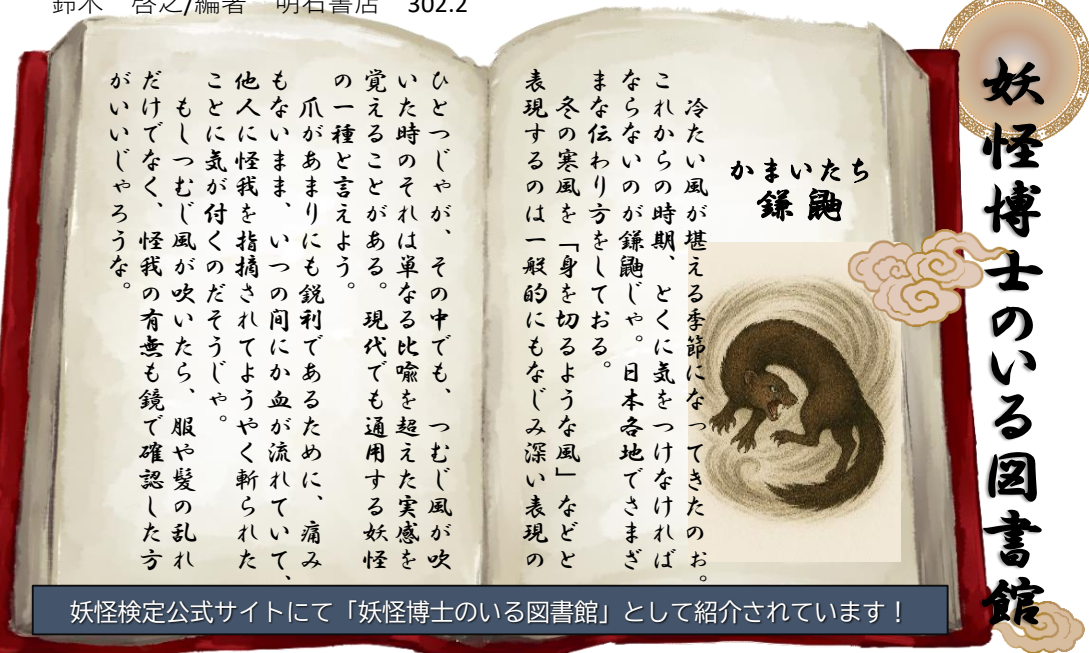 鈴木 啓之/編著 明石書店 302.2
妖怪博士のいる図書館
かまいたち
鎌鼬
冷たい風が堪える季節になってきたのお。
これからの時期、とくに気をつけなければ
ならないのが鎌鼬じゃ。日本各地でさまざ
まな伝わり方をしておる。
冬の寒風を「身を切るような風」などと
表現するのは一般的にもなじみ深い表現の
ひとつじゃが、その中でも、つむじ風が吹
いた時のそれは単なる比喩を超えた実感を
覚えることがある。現代でも通用する妖怪
の一種と言えよう。
爪があまりにも鋭利であるために、痛み
もないまま、いつの間にか血が流れていて、
他人に怪我を指摘されてようやく斬られた
ことに気が付くのだそうじゃ。
もしつむじ風が吹いたら、服や髪の乱れ
だけでなく、怪我の有無も鏡で確認した方
がいいじゃろうな。
妖怪検定公式サイトにて「妖怪博士のいる図書館」として紹介されています！